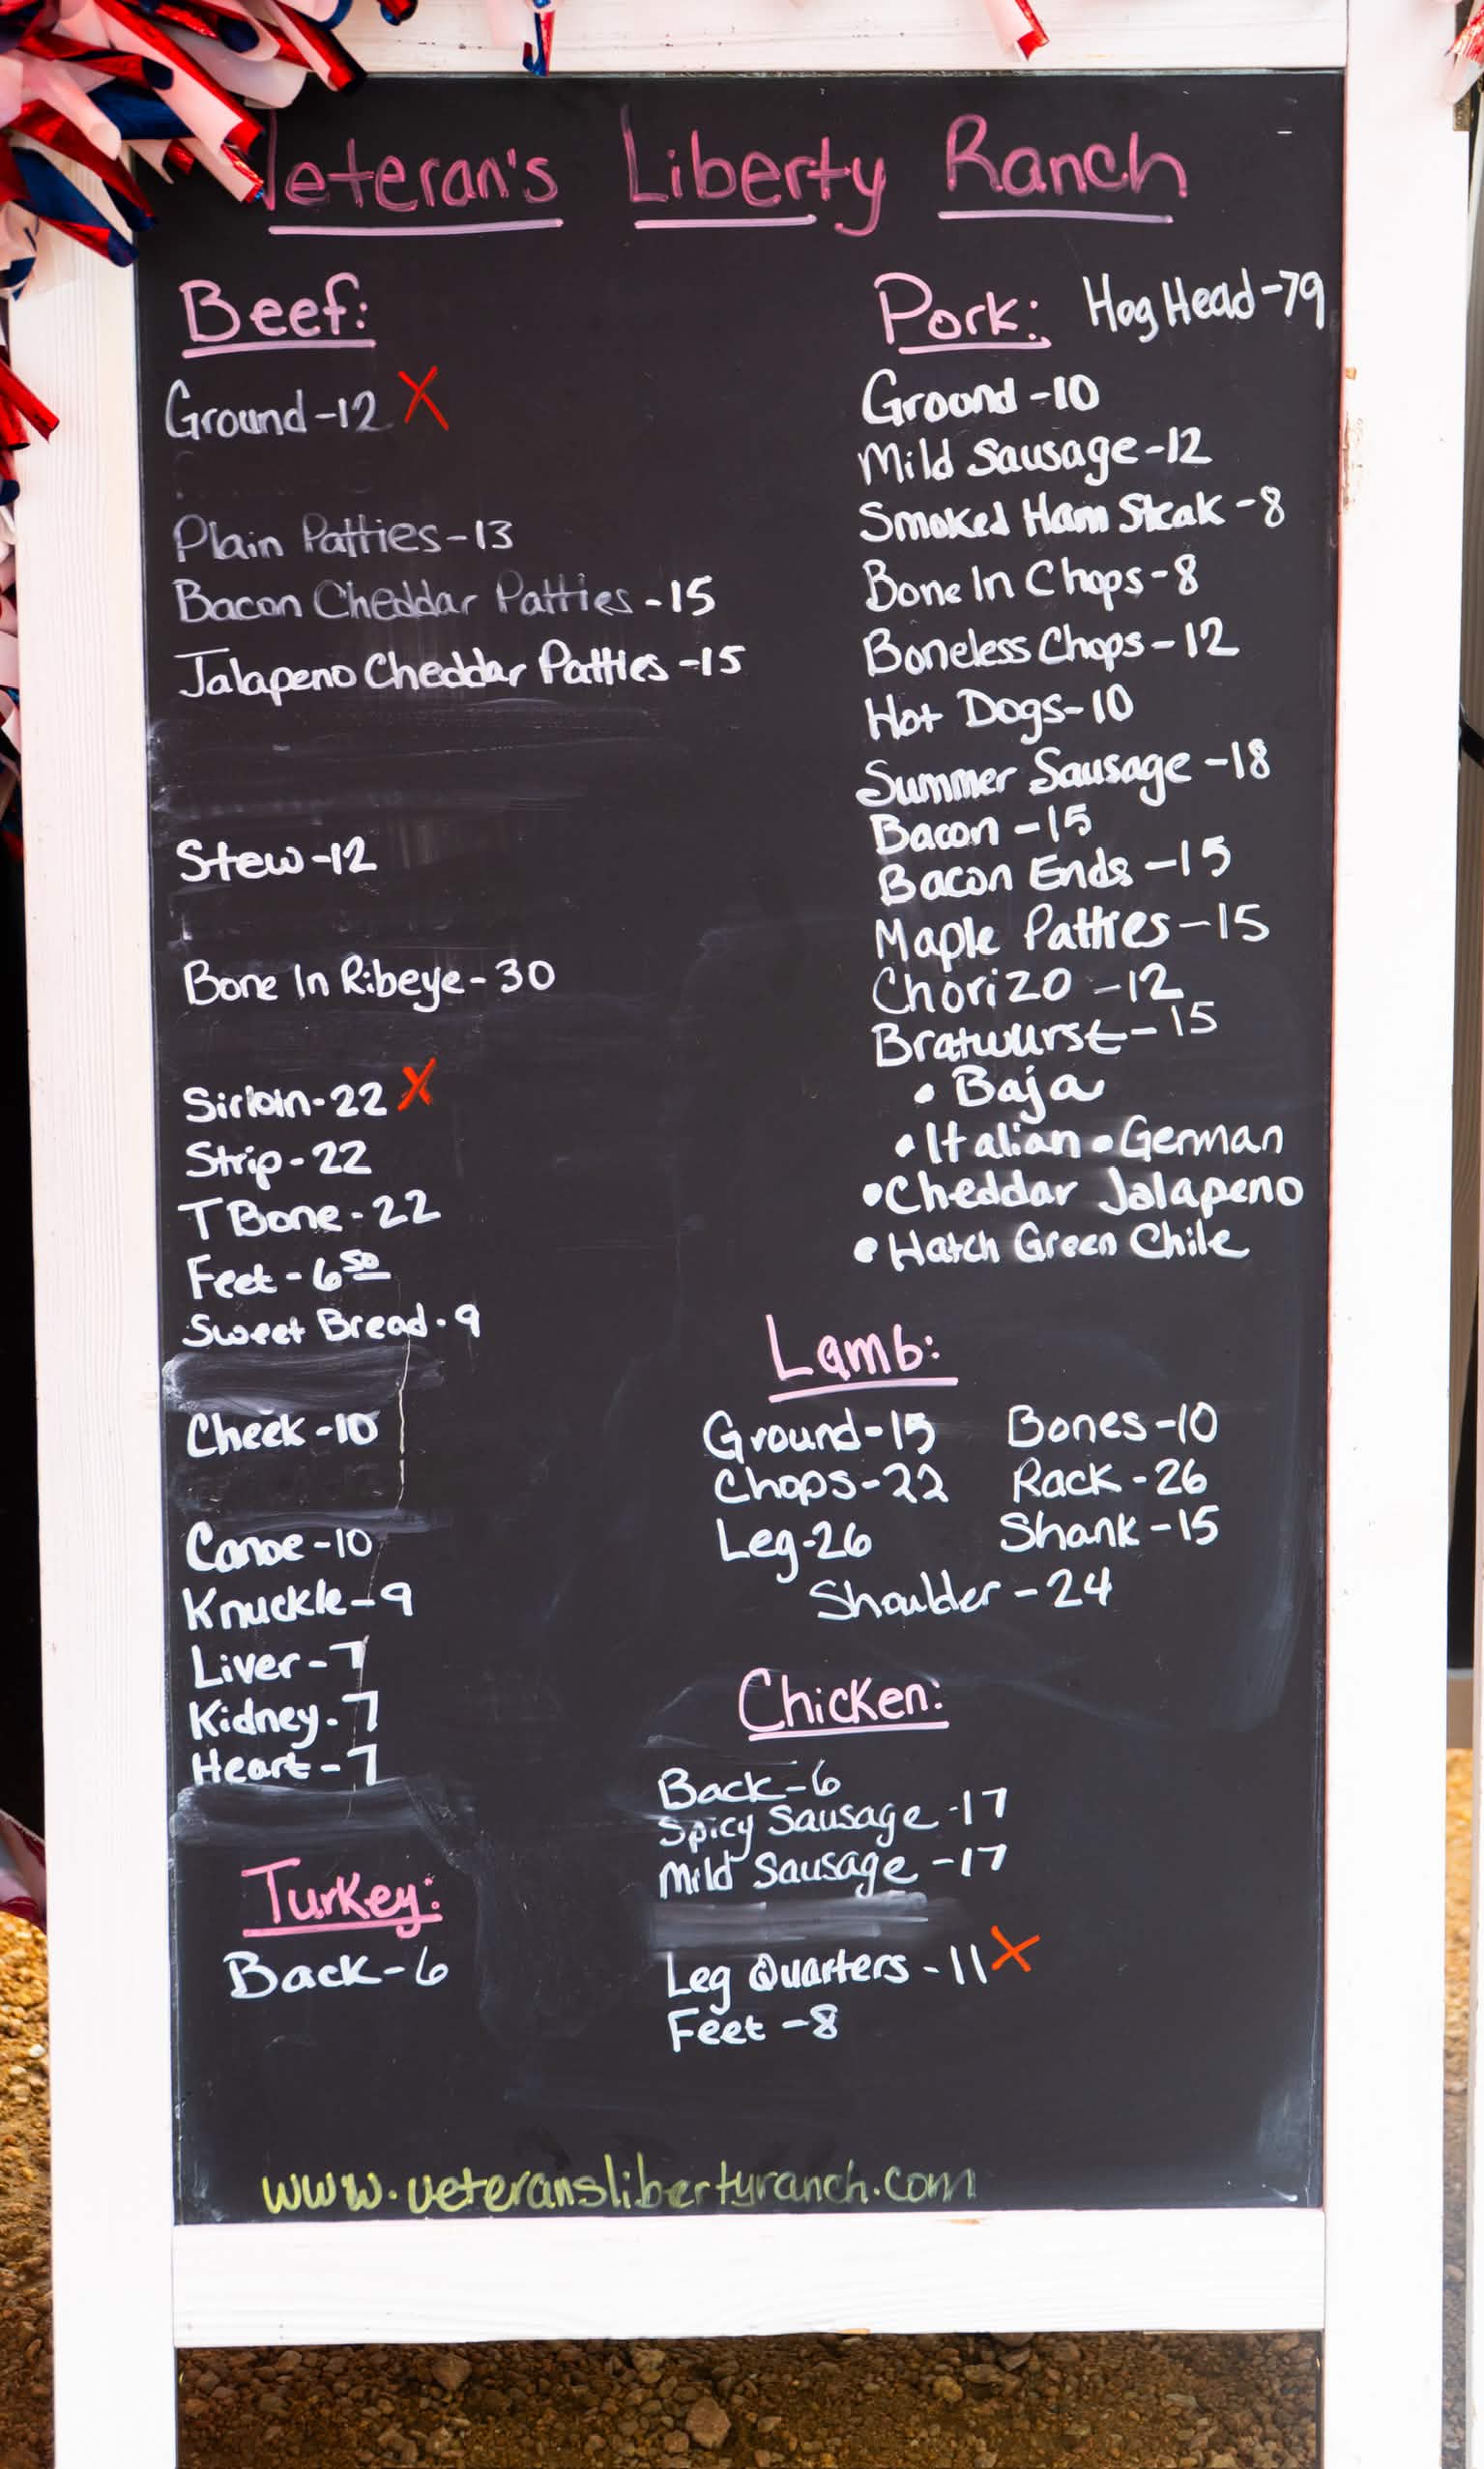 Veteran's Liberty Ranch
Beef:
Ground -12 X
Plain Patties - 13
Bacon Cheddar Patties - 15
Jalapeno Cheddar Patties - 15
Stew - 12
Bone In Ribeye - 30
Sirloin - 22 X
Strip - 22
T Bone - 22
Feet - 6 50
Sweet Bread - 9
Cheek - 10
Canoe - 10
Knuckle - 9
Liver - 7
Kidney - 7
Heart - 7
Turkey:
Back - 6
Pork: Hog Head - 79
Ground - 10
Mild Sausage - 12
Smoked Ham Steak - 8
Bone In Chops - 8
Boneless Chops - 12
Hot Dogs - 10
Summer Sausage - 18
Bacon - 15
Bacon Ends - 15
Maple Patties - 15
Chorizo - 12
Bratwurst - 15
• Baja
• Italian • German
• Cheddar Jalapeno
• Hatch Green Chile
Lamb:
Ground - 15 Bones - 10
Chops - 22 Rack - 26
Leg - 26 Shank - 15
Shoulder - 24
Chicken:
Back - 6
Spicy Sausage - 17
Mild Sausage - 17
Leg Quarters - 11 X
Feet - 8
www.veteranslibertyranch.com